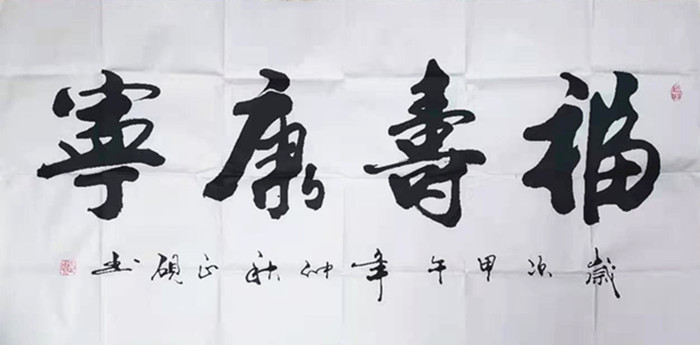 福壽康寧
歲次甲午年仲秋正硯书